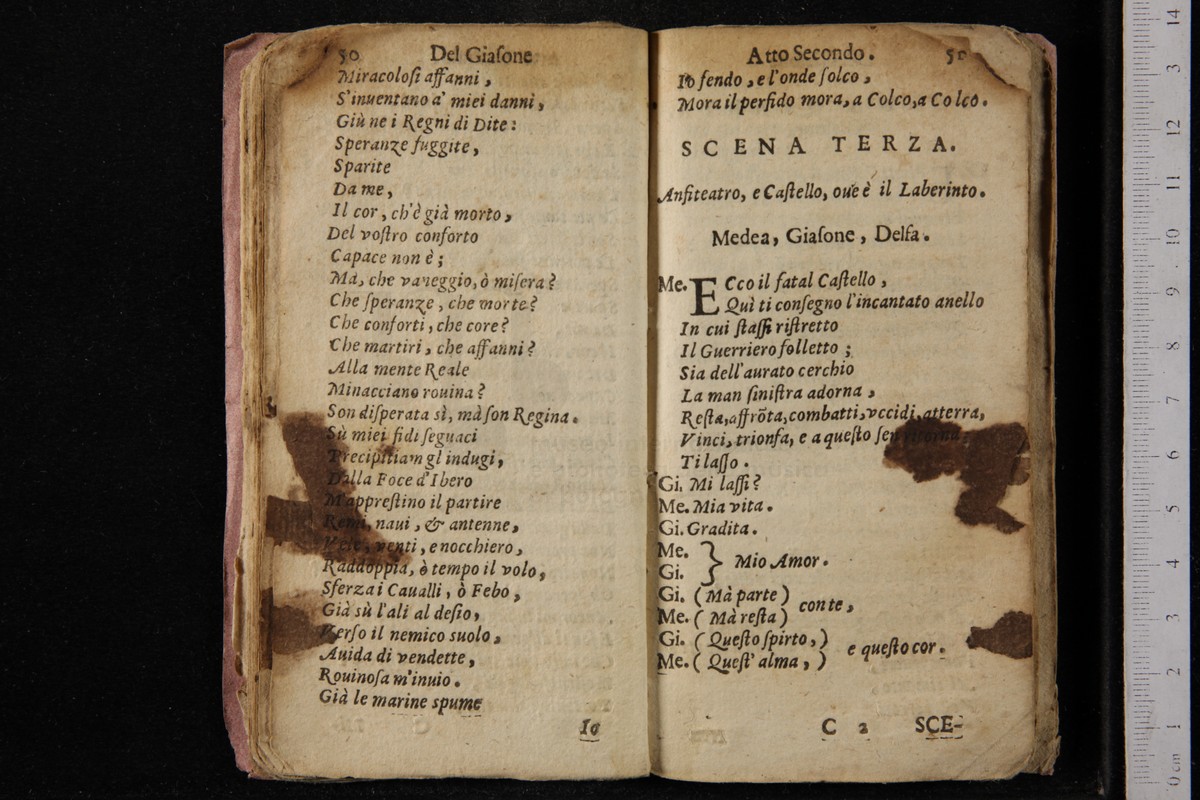 50 Del Giaſone
Miracoloſi affanni,
S'inuentano a' miei danni,
Giù ne i Regni di Dite:
Speranze fuggite,
Sparite
Da me,
Il cor, ch'è già morto,
Del voſtro conforto
Capace non è;
Mà, che vaneggio, ò miſera?
Che ſperanze, che morte?
Che conforti, che core?
Che martiri, che affanni?
Alla mente Reale
Minacciano rouina?
Son diſperata sì, mà ſon Regina.
Sù miei fidi ſeguaci
Precipitiam gl indugi,
Dalla Foce d'Ibero
M'appreſtino il partire
Remi, naui, & antenne,
Vele, venti, e nocchiero,
Raddoppia, è tempo il volo,
Sferza i Caualli, ò Febo,
Già sù l'ali al deſio,
Verſo il nemico suolo,
Auida di vendette,
Rouinoſa m'inuio.
Già le marine spume
Io
Atto Secondo.
Io fendo, e l'onde ſolco,
Mora il perfido mora, a Colco, a Colco.
SCENA TERZA.
Anfiteatro, e Caſtello, oue è il Laberinto.
Medea, Giaſone, Delfa.
Me. Ecco il fatal Caſtello,
Quì ti conſegno l'incantato anello
In cui ſtaſſi riſtretto
Il Guerriero folletto;
Sia dell'aurato cerchio
La man ſiniſtra adorna,
Reſta, affrõta, combatti, vccidi, atterra,
Vinci, trionfa, e a queſto ſen ritorna;
Ti laſſo.
Gi. Mi laſſi?
Me. Mia vita.
Gi. Gradita.
Me.
Gi. } Mio Amor.
Gi. (Mà parte)
Me. (Mà reſta) conte,
Gi. (Queſto ſpirto,)
Me. (Queſt' alma,) e queſto cor.
C 2 SCE-
14
13
12
11
10
9
8
7
6
5
4
3
2
1
0 cm